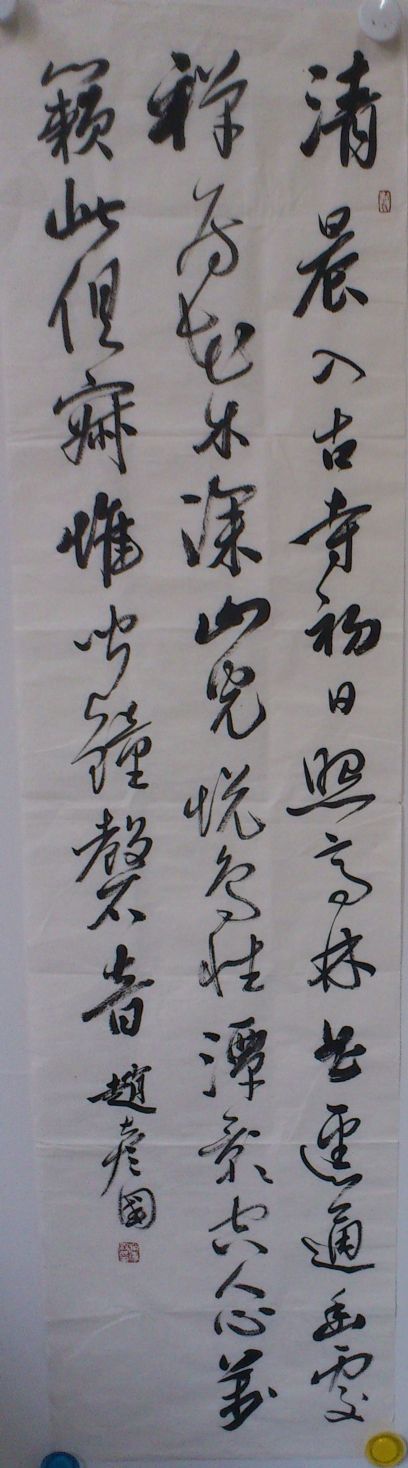 清晨入古寺初日照高林曲逕通幽處
禪房花木深山光悅鳥性潭影空人心萬
籟此俱寂惟聞鐘磬音 趙彥國